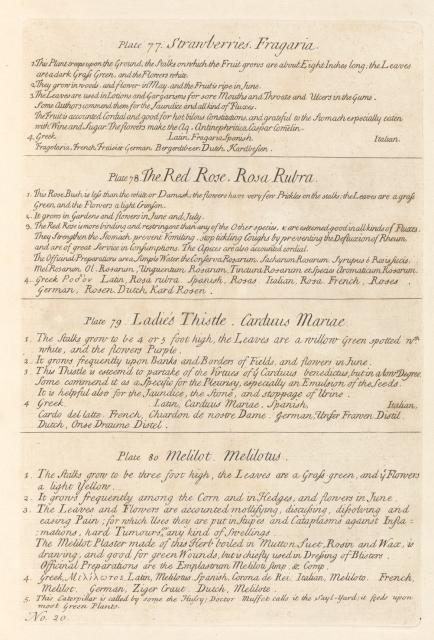 Plate 77. Strawberries. Fragaria.
1. This Plant creeps upon the Ground, the Stalks on which the Fruit grows are about Eight Inches long; the Leaves
are a dark Grass Green, and the Flowers white.
2. They grow in woods, and flower in May, and the Fruit is ripe in June.
3. The Leaves are used in Lotions and Gargarisms for sore Mouths and Throats and Ulcers in the Gums.
Some Authors commend them for the Jaundice and all kind of Fluxes.
The Fruit is accounted Cordial and good for hot bilous Constitutions, and grateful to the Stomach especially eaten
with Wine and Sugar. The flowers make the Aq. Antinephritica Caspar
4. Greek Latin, Fragaria. Spanish. Italian.
Fragolaria, French, Fraisier German, Bergerdbeer. Dutch, Kardbesien.
Plate 78. The Red Rose. Rosa Rubra.
1. This Rose Bush is less than the white or Damask; the flowers have very few Prickles on the stalks; the Leaves are a grass
Green, and the Flowers a light Crimson.
2. It grows in Gardens and flowers in June and July.
3. The Red Rose is more binding and restringent than any of the Other species, & are esteemed good in all kinds of Fluxes.
They Strengthen the Stomach, prevent Vomiting, Stop tickling Coughs by preventing the Defluxion of Rheum
and are of great Service in Consumptions. The Apices are also accounted cordial.
The Officinal Preparations are, Simple Water the Conserva Rosarum, Sacharum Rosarum, Syrupus è Rosis siccis.
Mel Rosarum, Ol: Rosarum, Unguentum Rosarum, Tinctura Rosarum et Species Aromaticum Rosarum.
4. Greek Latin, Rosa rubra. Spanish, Rosas Italian, Rosa French, Roses
German, Rosen Dutch, Kard Rosen.
Plate 79. Ladie's Thistle. Carduus Mariae.
1. The Stalks grow to be 4 or 5 foot high, the Leaves are a willow Green spotted wth
white, and the flowers Purple.
2. It grows frequently upon Banks and Borders of Fields, and flowers in June.
3. This Thistle is esteemed to partake of the Virtues of ye Carduus benedictus, but in a lowr Degree.
Some commend it as a Specific for the Pleurisy, especially an Emulsion of the Seeds.
It is helpful also for the Jaundice, the Stone, and stoppage of Urine.
4. Greek. Latin, Carduus Mariae. Spanish, Italian,
Cardo del latte. French, Chardon de nostre Dame. German, Unser Frawen Distil
Dutch, Onse Draums Distel.
Plate 80 Melilot. Melilotus.
1. The Stalks grow to be three foot high, the Leaves are a Grass green, and ye Flowers
a light Yellow.
2. It grows frequently among the Corn and in Hedges, and flowers in June.
3. The Leaves and Flowers are accounted mollifying, discussing, dissolving and
easing Pain; for which Uses they are put in Stupes and Cataplasms against Infla=
=mations, hard Tumours, any kind of Swellings.
The Melilot Plaster made of this Herb boiled in Mutton Suet, Rosin and Wax, is
drawing, and good for green Wounds, but is chiefly used in Dressing of Blisters.
Officinal Preparations are the Emplastrum Meliloti Simp. & Comp.
4. Greek, Μελίλωτος Latin, Melilotus, Spanish, Corona de Rei. Italian, Meliloto. French,
Melilot. German, Ziger Craut. Dutch, Melilote.
5. This Caterpillar is called by some the Husry; Doctor Muffet calls it the Sayl-Yard; it feeds upon
most Green Plants.
No. 20.